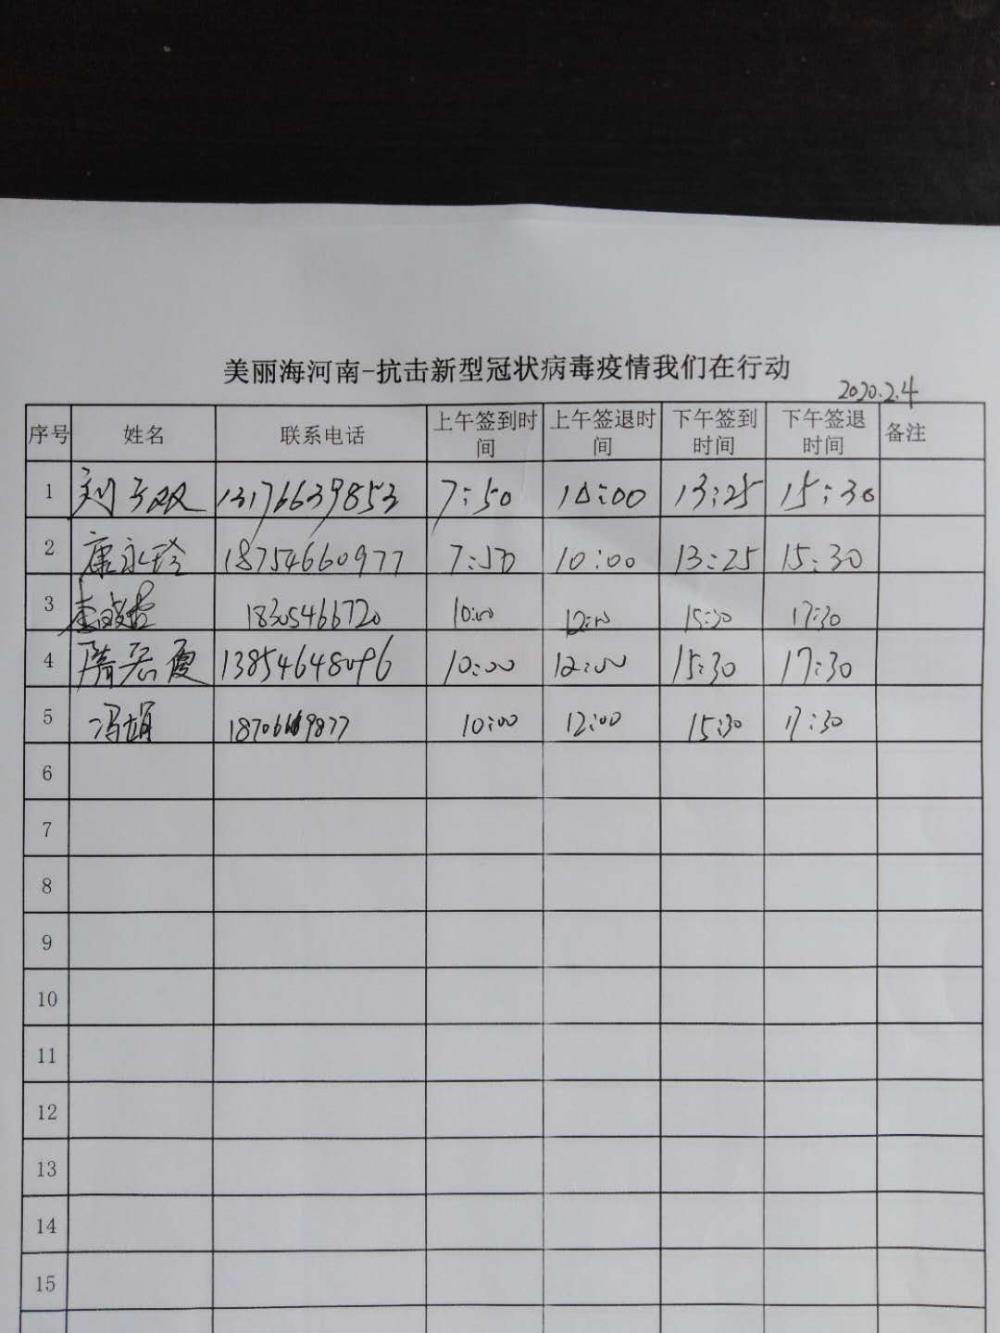 美丽海河南-抗击新型冠状病毒疫情我们在行动
2020.2.4
序号 姓名 联系电话 上午签到时间 上午签退时间 下午签到时间 下午签退时间 备注
1 刘 双 13176639853 7:50 10:00 13:25 15:30
2 康永玲 18754660977 7:50 10:00 13:25 15:30
3 李 18305466720 10:00 12:00 15:30 17:30
4 隋 霞 13854648096 10:00 12:00 15:30 17:30
5 冯娟 10:00 12:00 15:30 17:30
6
7
8
9
10
11
12
13
14
15